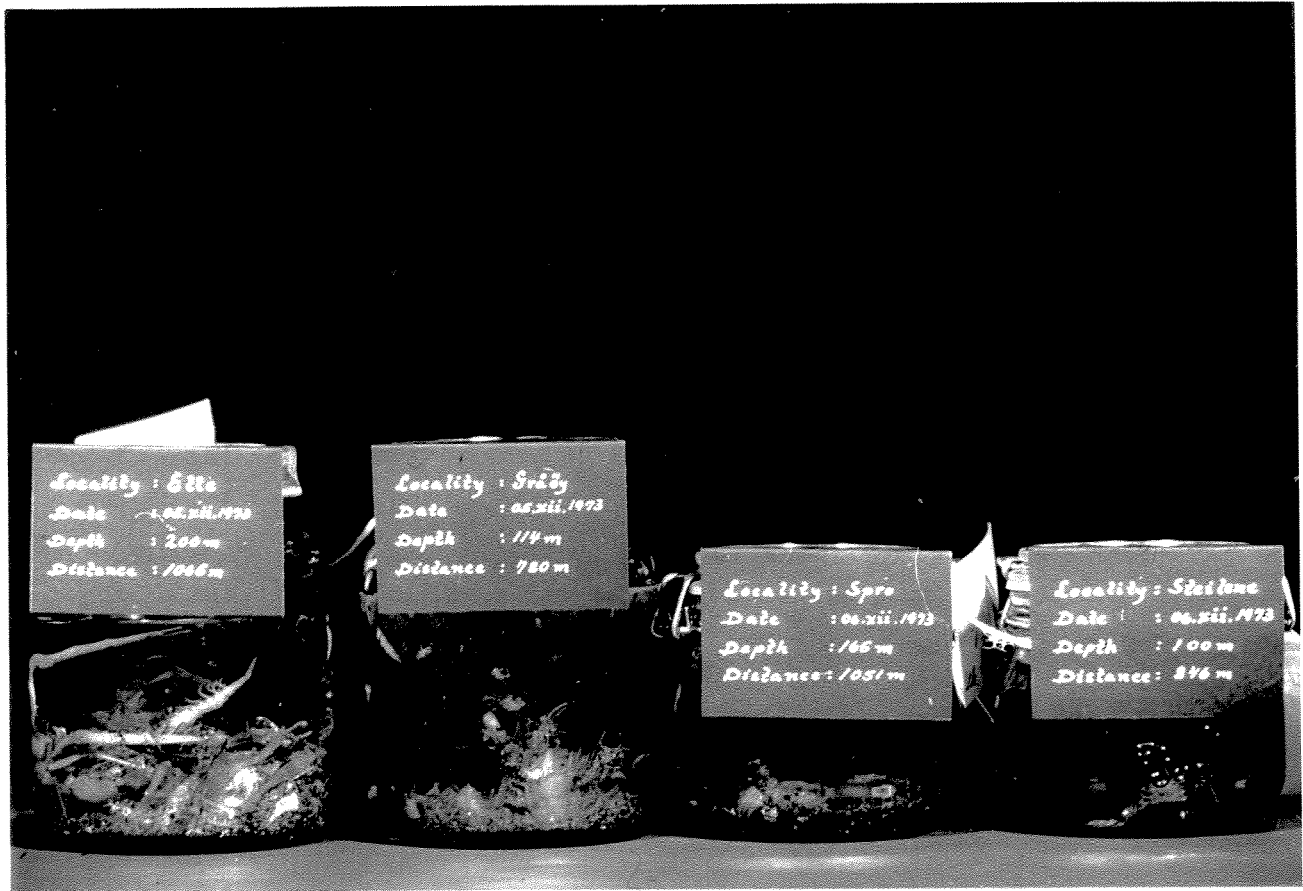 Locality : Elle
Date : 06.xii.1973
Depth : 200 m
Distance : 1066 m
Locality : Gråøy
Date : 06.xii.1973
Depth : 114 m
Distance : 780 m
Locality : Spro
Date : 06.xii.1973
Depth : 166 m
Distance : 1051 m
Locality : Steilene
Date : 06.xii.1973
Depth : 100 m
Distance : 846 m